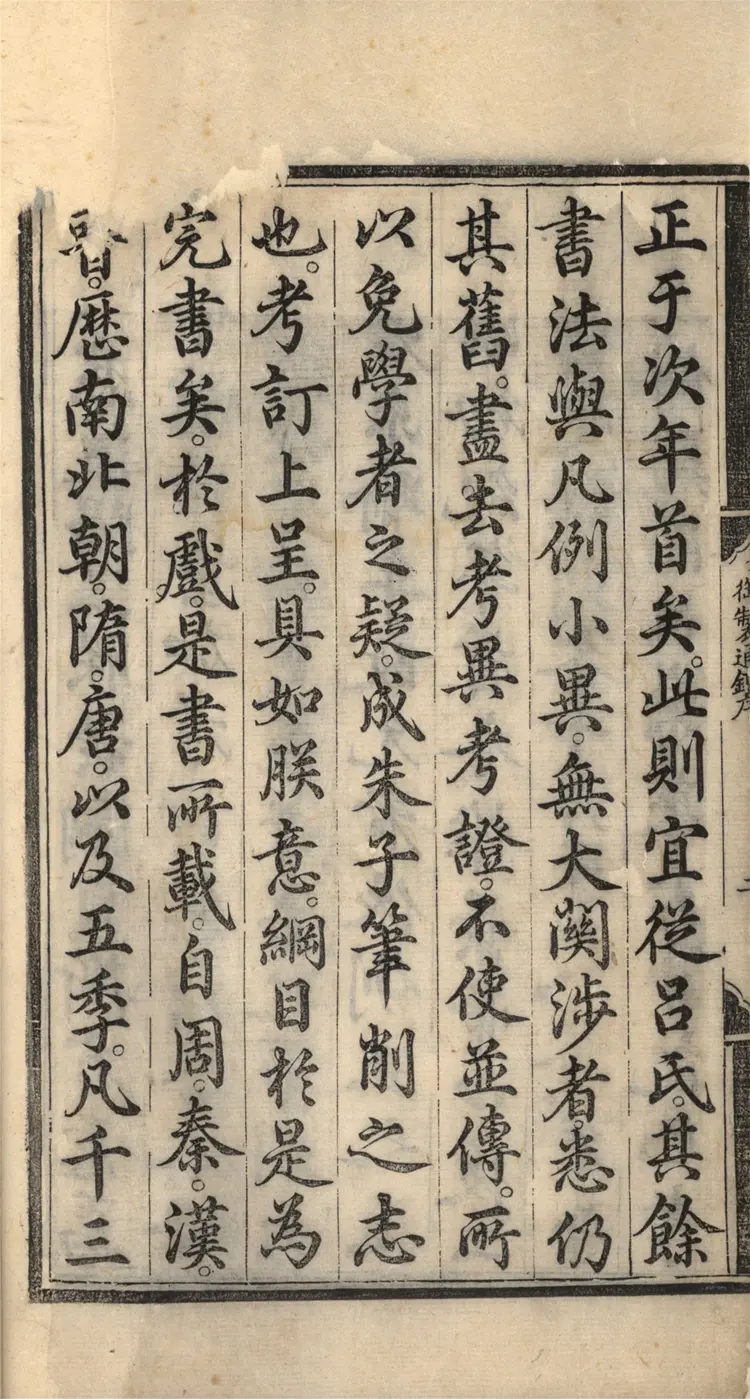 正于次年首矣。此則宜從呂氏。其餘
書法與凡例小異。無大關涉者。悉仍
其舊。盡去考異考證。不使並傳。所
以免學者之疑。成朱子筆削之志
也。考訂上呈。具如朕意。綱目於是為
完書矣。於戲。是書所載。自周。秦。漢。
晉。歷南北朝。隋。唐。以及五季。凡千三
御製通鑑序
二